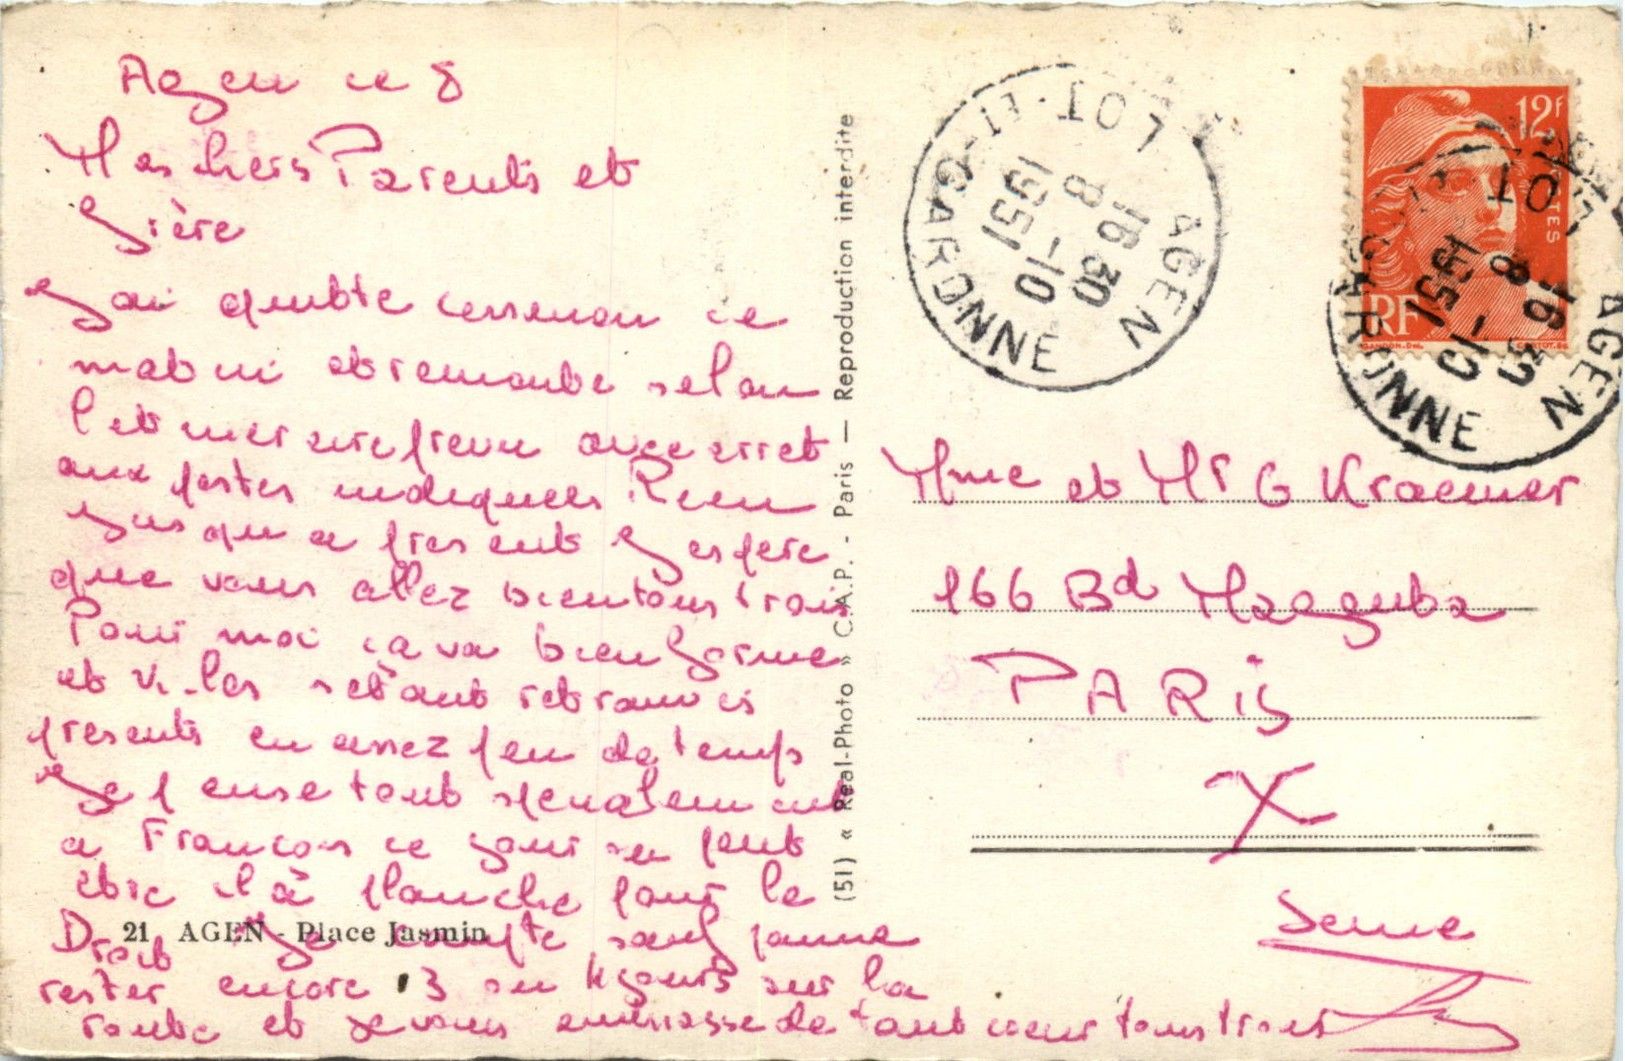 Agen ce 8
Mes chers Parents et
Frère
J'ai quitté ce
matin et remonte selon
l'itineraire prevu avec arret
aux postes indiqués Rien
Jusqu'a present J'espere
que vous allez bien tous trois
Pour moi ca va bien forme
et V.
presents en assez peu de temps
Je pense tout specialement
a François ce jour ou peut
etre il a planché pour le
Droit Je compte sauf panne
rester encore 3 ou 4 jours sur la
route et je vous embrasse de tout coeur tous trois
21 AGEN - Place Jasmin
(51) « Real-Photo » C.A.P. - Paris — Reproduction interdite
AGEN
LOT-ET-GARONNE
16 30
8 -10
1951
12f
POSTES
RF
GANDON-DEL.
AGEN
LOT
GARONNE
16 30
8 -10
1951
Mme et Mr G Kraemer
166 Bd Magenta
PARIS
X
Seine